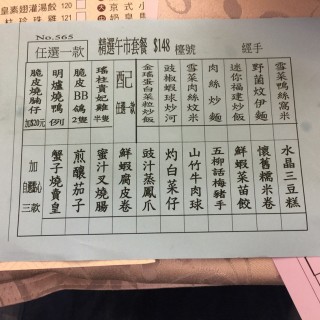 皇素翅灌湯餃
桂珍雞
京式小
No.565
任選一款
精選午市套餐 $148 檯號 經手
雪菜鴨絲窩米
野菌炆伊麵
迷你福建炒飯
肉絲炒麵
雪菜肉絲炆米
豉椒蝦球炒河
金瑤蛋白菜粒炒飯
配任選一款
瑤柱貴妃雞 半隻
脆皮BB鴿 2隻
明爐燒鴨 例
脆皮燒腩仔 加$20元
水晶三豆糕
懷舊糯米卷
鮮蝦菜苗餃
五柳話梅豬手
山竹牛肉球
灼白菜仔
豉汁蒸鳳爪
鮮蝦腐皮卷
蜜汁叉燒腸
煎釀茄子
蟹子燒賣皇
加自選點心三款